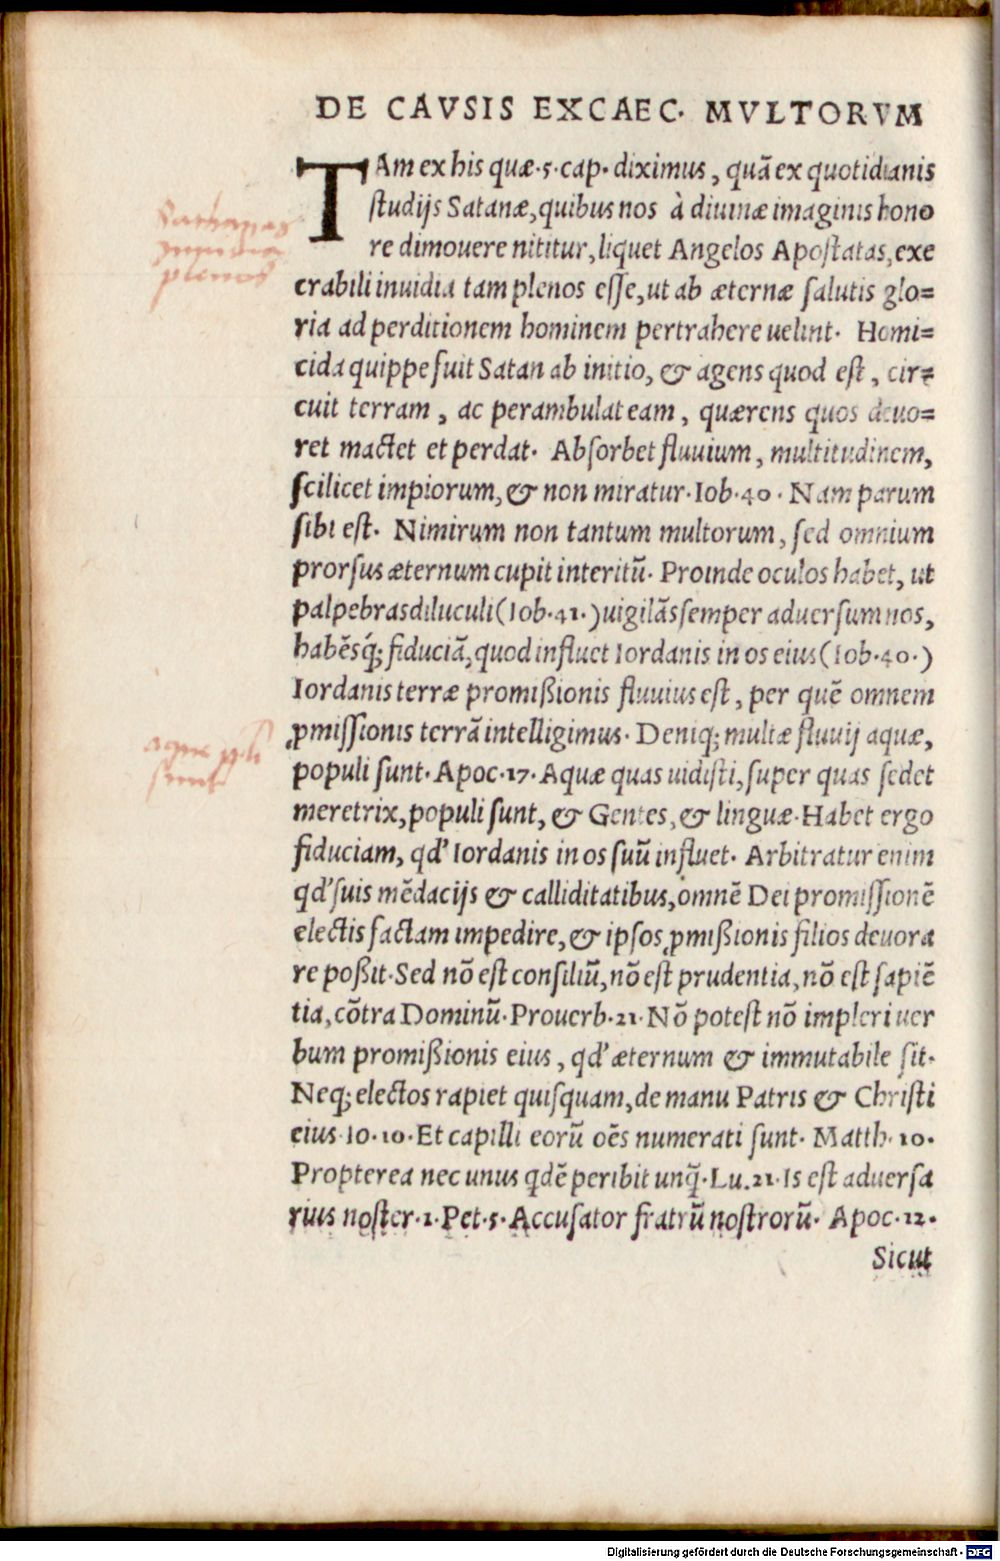 DE CAVSIS EXCAEC. MVLTORVM
TAm ex his quæ.5.cap. diximus, quā ex quotidianis
studijs Satanæ, quibus nos à diuinæ imaginis hono
re dimouere nititur, liquet Angelos Apostatas, exe
crabili inuidia tam plenos esse, ut ab æternæ salutis glo=
ria ad perditionem hominem pertrahere uelint. Homi=
cida quippe fuit Satan ab initio, & agens quod est, cir=
cuit terram, ac perambulat eam, quærens quos deuo=
ret mactet et perdat. Absorbet fluuium, multitudinem,
scilicet impiorum, & non miratur. Iob.40. Nam parum
sibi est. Nimirum non tantum multorum, sed omnium
prorsus æternum cupit interitū. Proinde oculos habet, ut
palpebras diluculi (Iob.41.) uigilās semper aduersum nos,
habēsq́; fiduciā, quod influet Iordanis in os eius (Iob.40.)
Iordanis terræ promißionis fluuius est, per quē omnem
ꝓmissionis terrā intelligimus. Deniq; multæ fluuij aquæ,
populi sunt. Apoc.17. Aquæ quas uidisti, super quas sedet
meretrix, populi sunt, & Gentes, & linguæ. Habet ergo
fiduciam, qd' Iordanis in os suū influet. Arbitratur enim
qd' suis mēdacijs & calliditatibus, omnē Dei promissionē
electis factam impedire, & ipsos ꝓmißionis filios deuora
re poßit. Sed nō est consiliū, nō est prudentia, nō est sapiē
tia, cōtra Dominū. Prouerb.21. Nō potest nō impleri uer
bum promißionis eius, qd' æternum & immutabile sit.
Neq; electos rapiet quisquam, de manu Patris & Christi
eius Io.10. Et capilli eorū oēs numerati sunt. Matth.10.
Propterea nec unus qdē peribit unq̄. Lu.21. Is est aduersa
rius noster.1.Pet.5. Accusator fratrū nostrorū. Apoc.12.
Sicut
Sathanas
inuidia
plenos
aque ppli
sunt
Digitalisierung gefördert durch die Deutsche Forschungsgemeinschaft - DFG